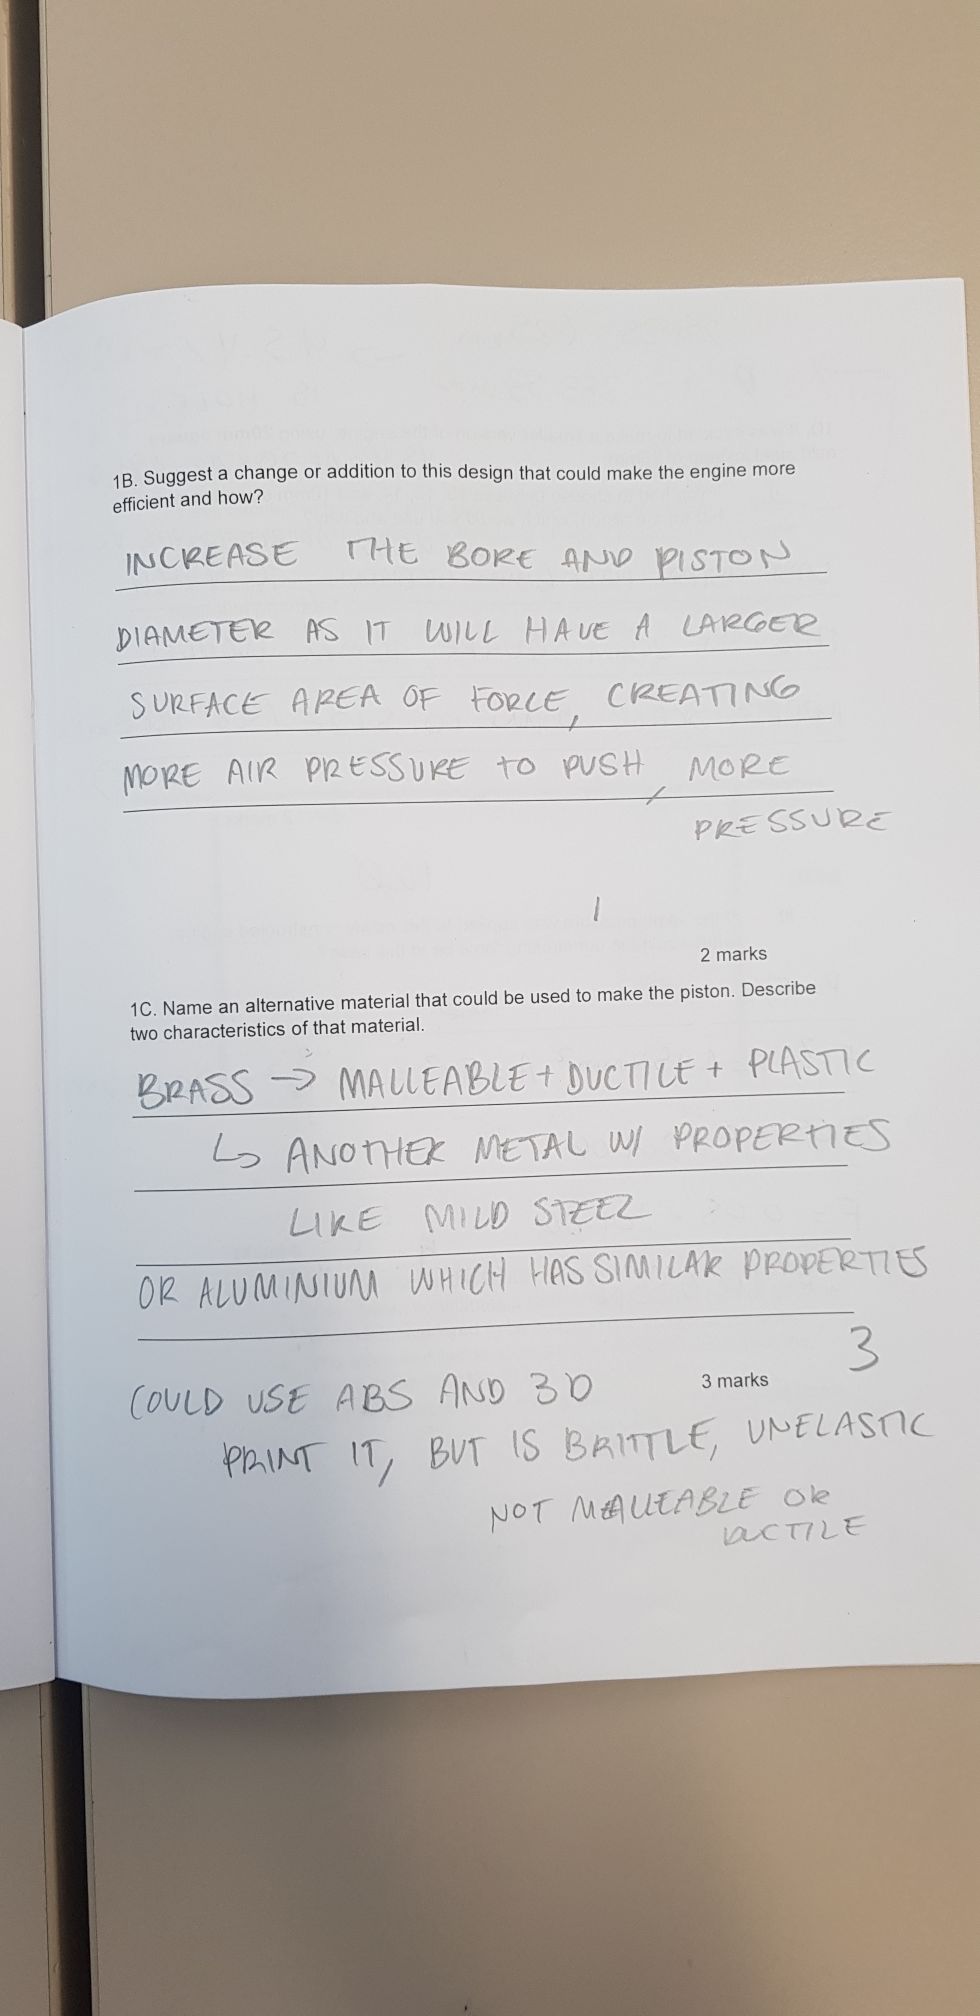 1B. Suggest a change or addition to this design that could make the engine more
efficient and how?
INCREASE THE BORE AND PISTON
DIAMETER AS IT WILL HAVE A LARGER
SURFACE AREA OF FORCE, CREATING
MORE AIR PRESSURE TO PUSH, MORE
PRESSURE
1
2 marks
1C. Name an alternative material that could be used to make the piston. Describe
two characteristics of that material.
BRASS → MALLEABLE + DUCTILE + PLASTIC
↳ ANOTHER METAL W/ PROPERTIES
LIKE MILD STEEL
OR ALUMINIUM WHICH HAS SIMILAR PROPERTIES
3
3 marks
COULD USE ABS AND 3D
PRINT IT, BUT IS BRITTLE, UNELASTIC
NOT MALLEABLE OR
DUCTILE